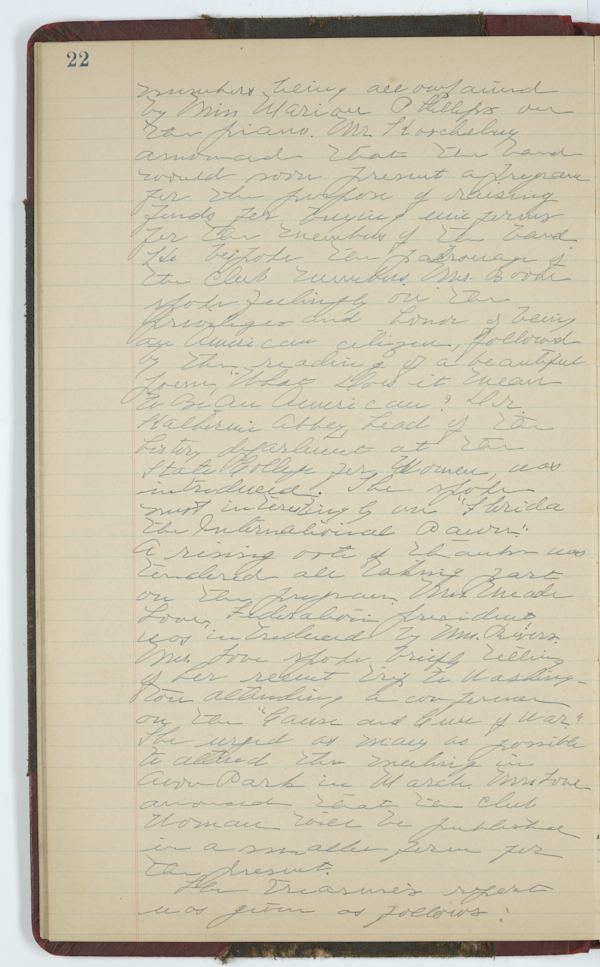 22
numbers being accompanied
by Miss Marian Phillips on
the piano. Mr.
announced that the band
would soon present a program
for the purpose of raising
funds for buying uniforms
for the members of the band
He bespoke the patronage of
the Club members. Mrs. Booth
spoke feelingly on the
privileges and honor of being
an American citizen, followed
by the reading of a beautiful
poem, "What Does it Mean
to Be An American." Dr.
Katherine Abbey, head of the
history department at the
State College for Women, was
introduced. She spoke
most interestingly on "Florida
the International Pawn".
A rising vote of thanks was
tendered all taking part
on the program. Mrs. Meade
Love, Federation president
was introduced by Mrs. Rivers.
Mrs. Love spoke briefly telling
of her recent trip to Washing-
ton attending a conference
on the "Cause and Cure of War."
She urged as many as possible
to attend the meeting in
Avon Park in March. Mrs Love
announced that the Club
Woman will be published
in a smaller form for
the present.
The treasurer's report
was given as follows: